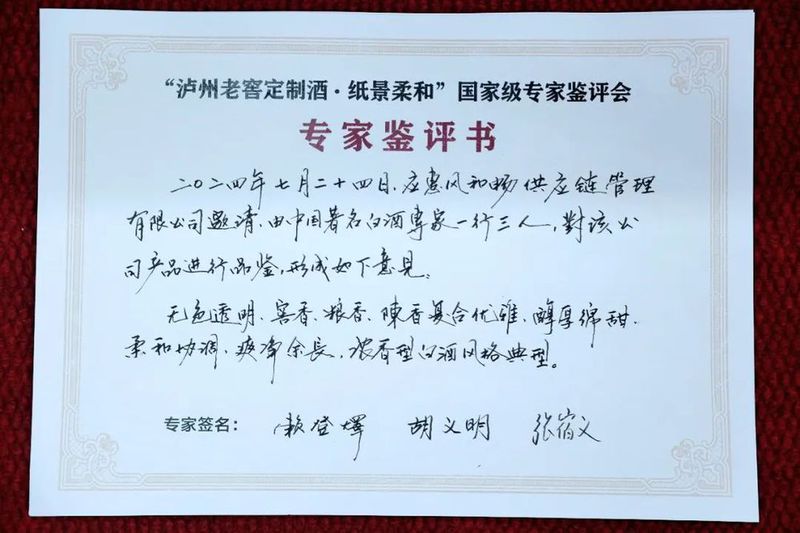 “泸州老窖定制酒·纸景柔和”国家级专家鉴评会
专家鉴评书
二〇二四年七月二十四日,应惠风和畅供应链管理
有限公司邀请,由中国著名白酒專家一行三人,對该公
司产品进行品鉴,形成如下意见。
无色透明、窖香、粮香、陳香复合优雅、醇厚绵甜、
柔和协调、爽净余長,浓香型白酒风格典型。
专家签名: 赖登燡 胡义明 张宿义